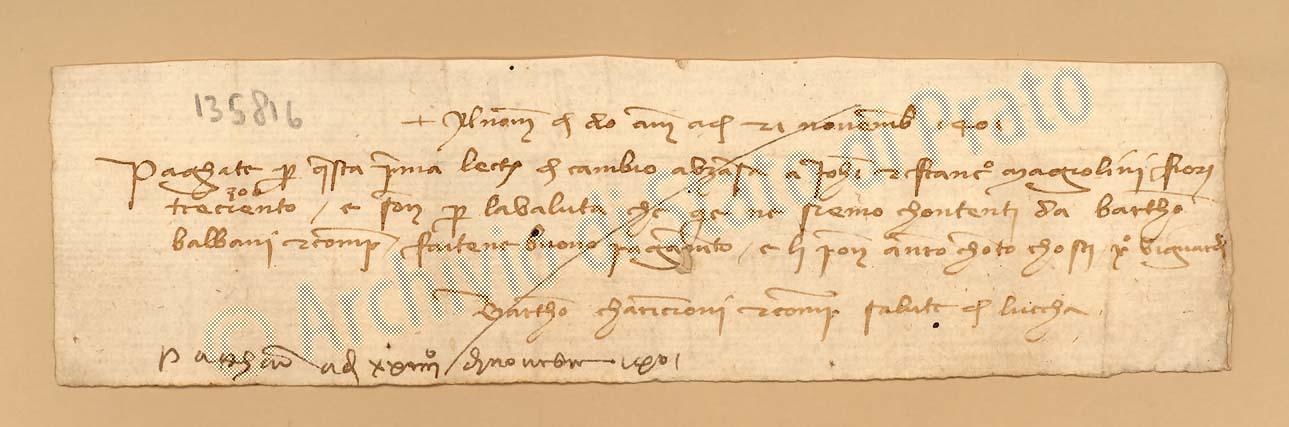 135816
+ Al nome di dio am adi 21 novemb 1401
Paghate p questa prima lectª di cambio a usanza a Johi e franc° magiolini fiori
300
trecento / e son p la valuta che qe ne siemo chontenti da bartho
balbani e comp / fatene buono paghamto / e li pon a nro choto chosti xpo vi guardi
Bartho charincioni e comp salute di luccha
Paghati adi xxiiii° di novenbre 1401
© Archivio di Stato di Prato